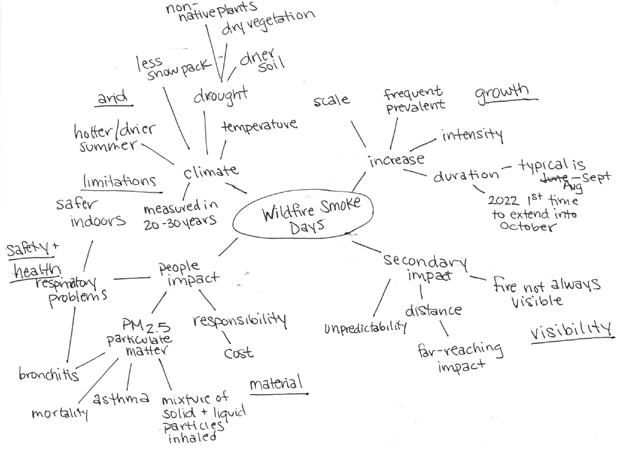 non-
native plants
dry vegetation
drier
soil
less
snowpack
drought
arid
temperature
hotter/drier
summer
climate
limitations
measured in
20-30 years
scale
frequent
prevalent
growth
intensity
increase
duration
typical is
June-Sept
Aug
2022 1st time
to extend into
October
Wildfire Smoke
Days
safer
indoors
safety +
health
respiratory
problems
people
impact
responsibility
cost
PM 2.5
particulate
matter
bronchitis
mortality
asthma
mixture of
solid + liquid
particles
inhaled
material
secondary
impact
fire not always
visible
unpredictability
distance
far-reaching
impact
visibility